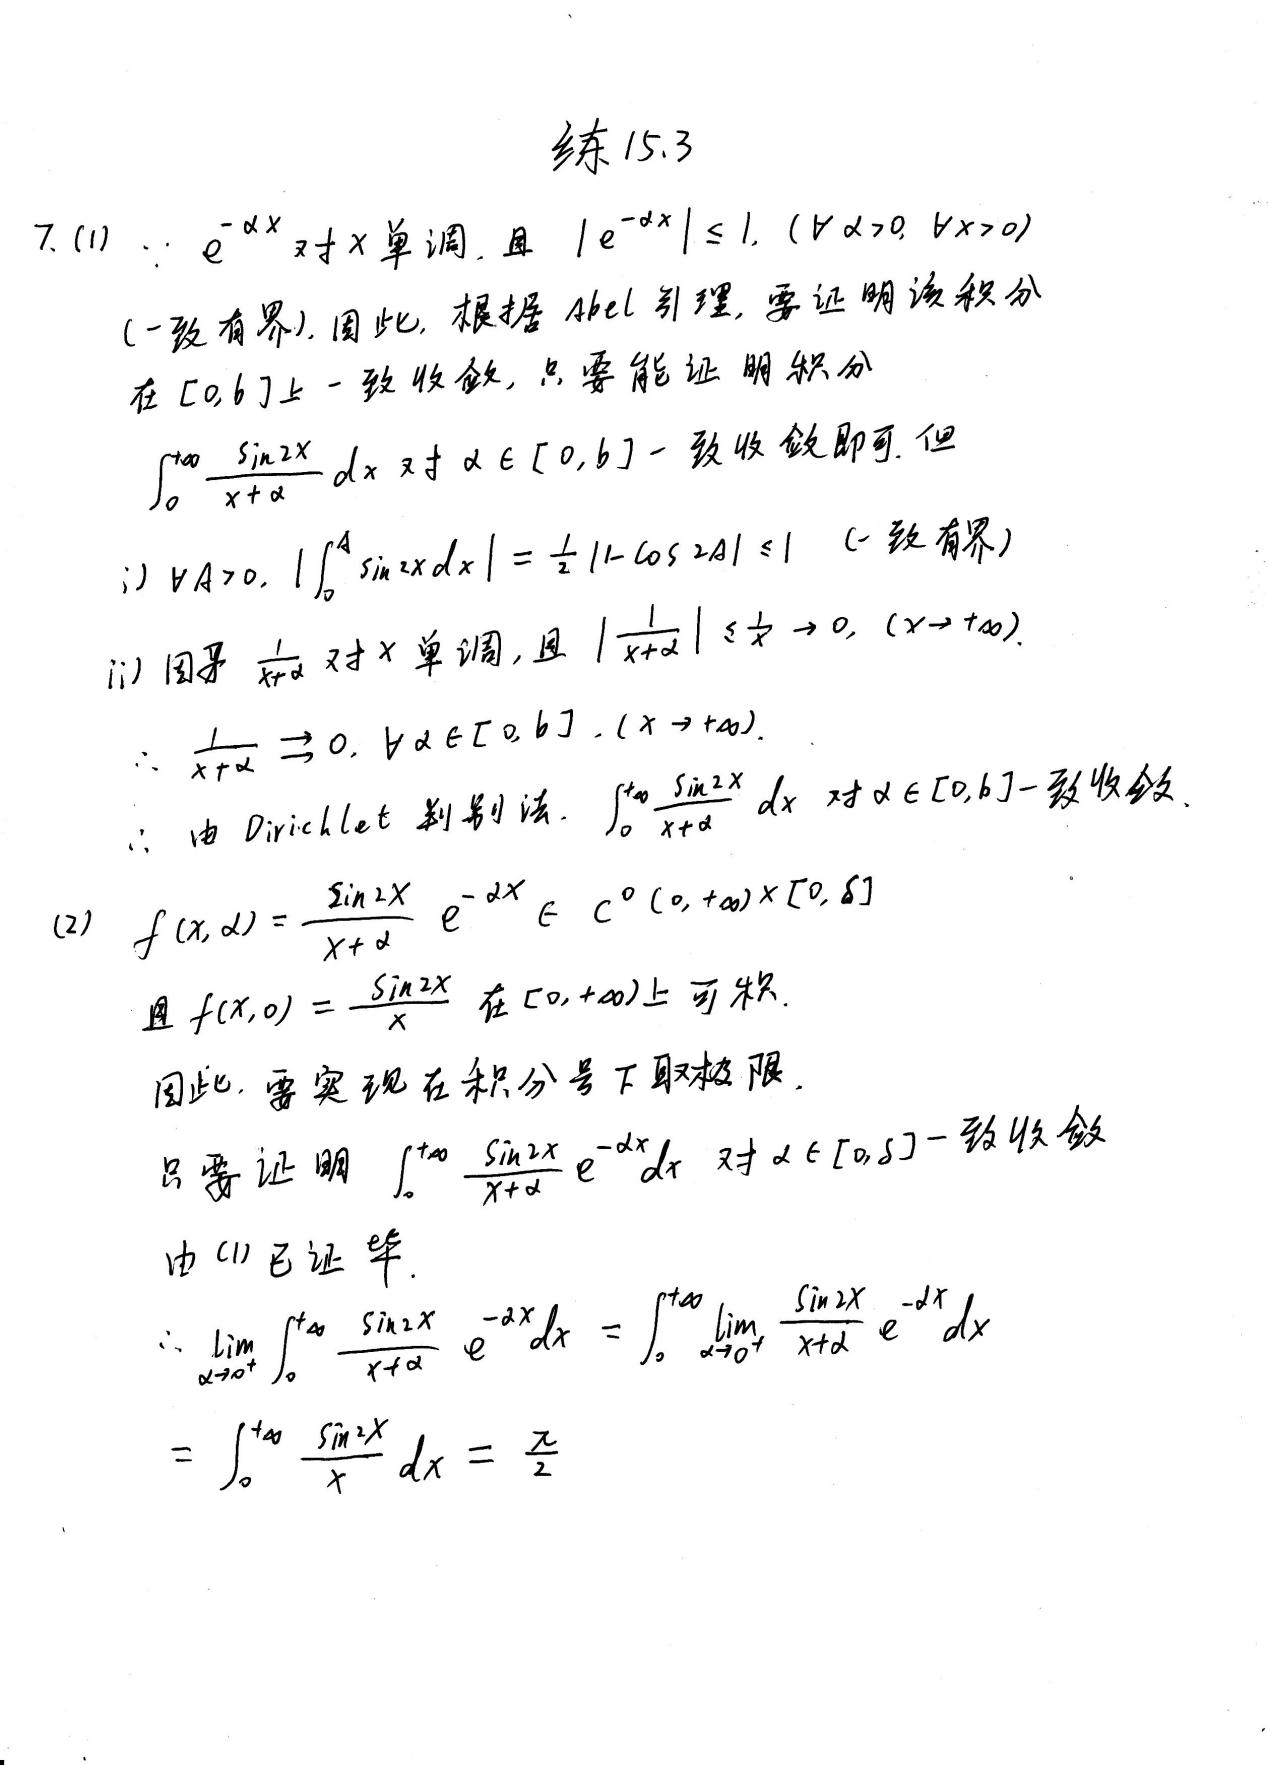 练 15.3
7.(1) ∵ e^{-αx} 对 x 单调, 且 |e^{-αx}| ≤ 1, (∀ α>0, ∀x>0)
(一致有界). 因此, 根据 Abel 引理, 要证明该积分
在 [0,b] 上一致收敛, 只要能证明积分
∫_0^{+∞} \frac{sin2x}{x+α} dx 对 α ∈ [0,b] 一致收敛即可. 但
i) ∀A>0, |∫_0^A sin2x dx| = \frac{1}{2} |1-cos2A| ≤ 1 (一致有界)
ii) 因为 \frac{1}{x+α} 对 x 单调, 且 |\frac{1}{x+α}| ≤ \frac{1}{x} → 0, (x→+∞).
∴ \frac{1}{x+α} ⇉ 0, ∀α∈[0,b], (x→+∞).
∴ 由 Dirichlet 判别法, ∫_0^{+∞} \frac{sin2x}{x+α} dx 对 α∈[0,b] 一致收敛.
(2) f(x,α) = \frac{sin2x}{x+α} e^{-αx} ∈ C^0 (0,+∞)×[0,δ]
且 f(x,0) = \frac{sin2x}{x} 在 [0,+∞) 上可积.
因此, 要实现在积分号下取极限,
只要证明 ∫_0^{+∞} \frac{sin2x}{x+α} e^{-αx} dx 对 α∈[0,δ] 一致收敛
由 (1) 已证毕.
∴ lim_{α→0^+} ∫_0^{+∞} \frac{sin2x}{x+α} e^{-αx} dx = ∫_0^{+∞} lim_{α→0^+} \frac{sin2x}{x+α} e^{-αx} dx
= ∫_0^{+∞} \frac{sin2x}{x} dx = \frac{π}{2}